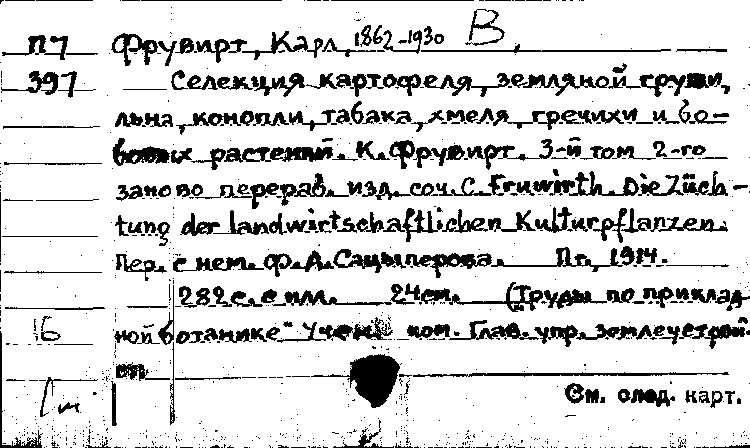 П7 Фрувирт, Карл, 1862-1930 В,
397 Селекция картофеля, земляной груши,
льна, конопли, табака, хмеля, гречихи и бо-
бовых растений. К. Фрувирт. 3-й том 2-го
заново перераб. изд. соч. C. Fruwirth. Die Züch-
tung der landwirtschaftlichen Kulturpflanzen.
Пер. с нем. Ф. А. Сацыперова. Пг., 1914.
282 с. с илл. 24 см. (Труды по приклад-
16 ной ботанике" Учен. ком. Глав. упр. землеустрой-
См. след. карт.